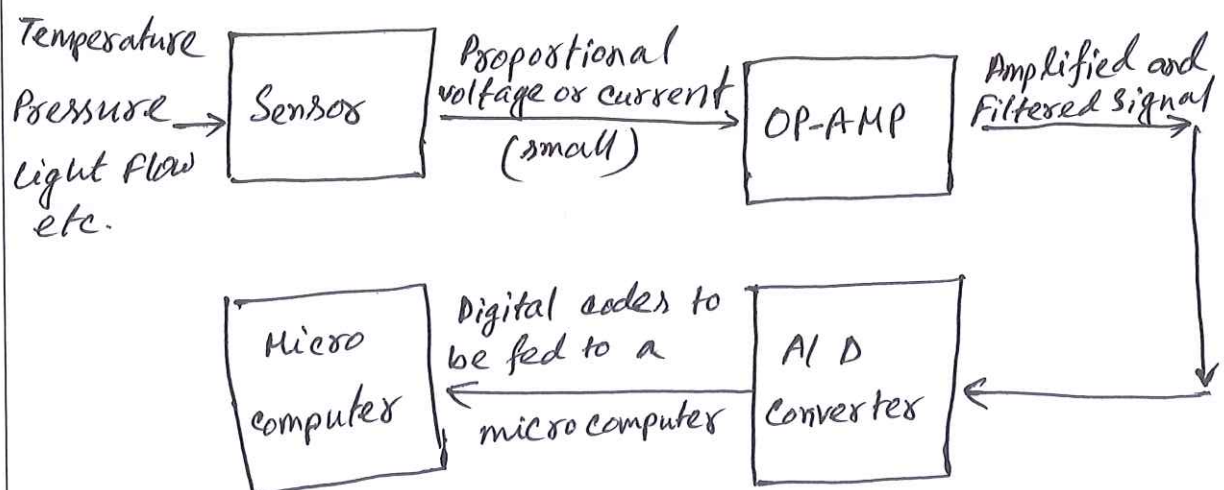 Temperature
Pressure
light Flow
etc.
Sensor
Proportional
voltage or current
(small)
OP-AMP
Amplified and
Filtered Signal
Micro
computer
Digital codes to
be fed to a
micro computer
A/D
Converter